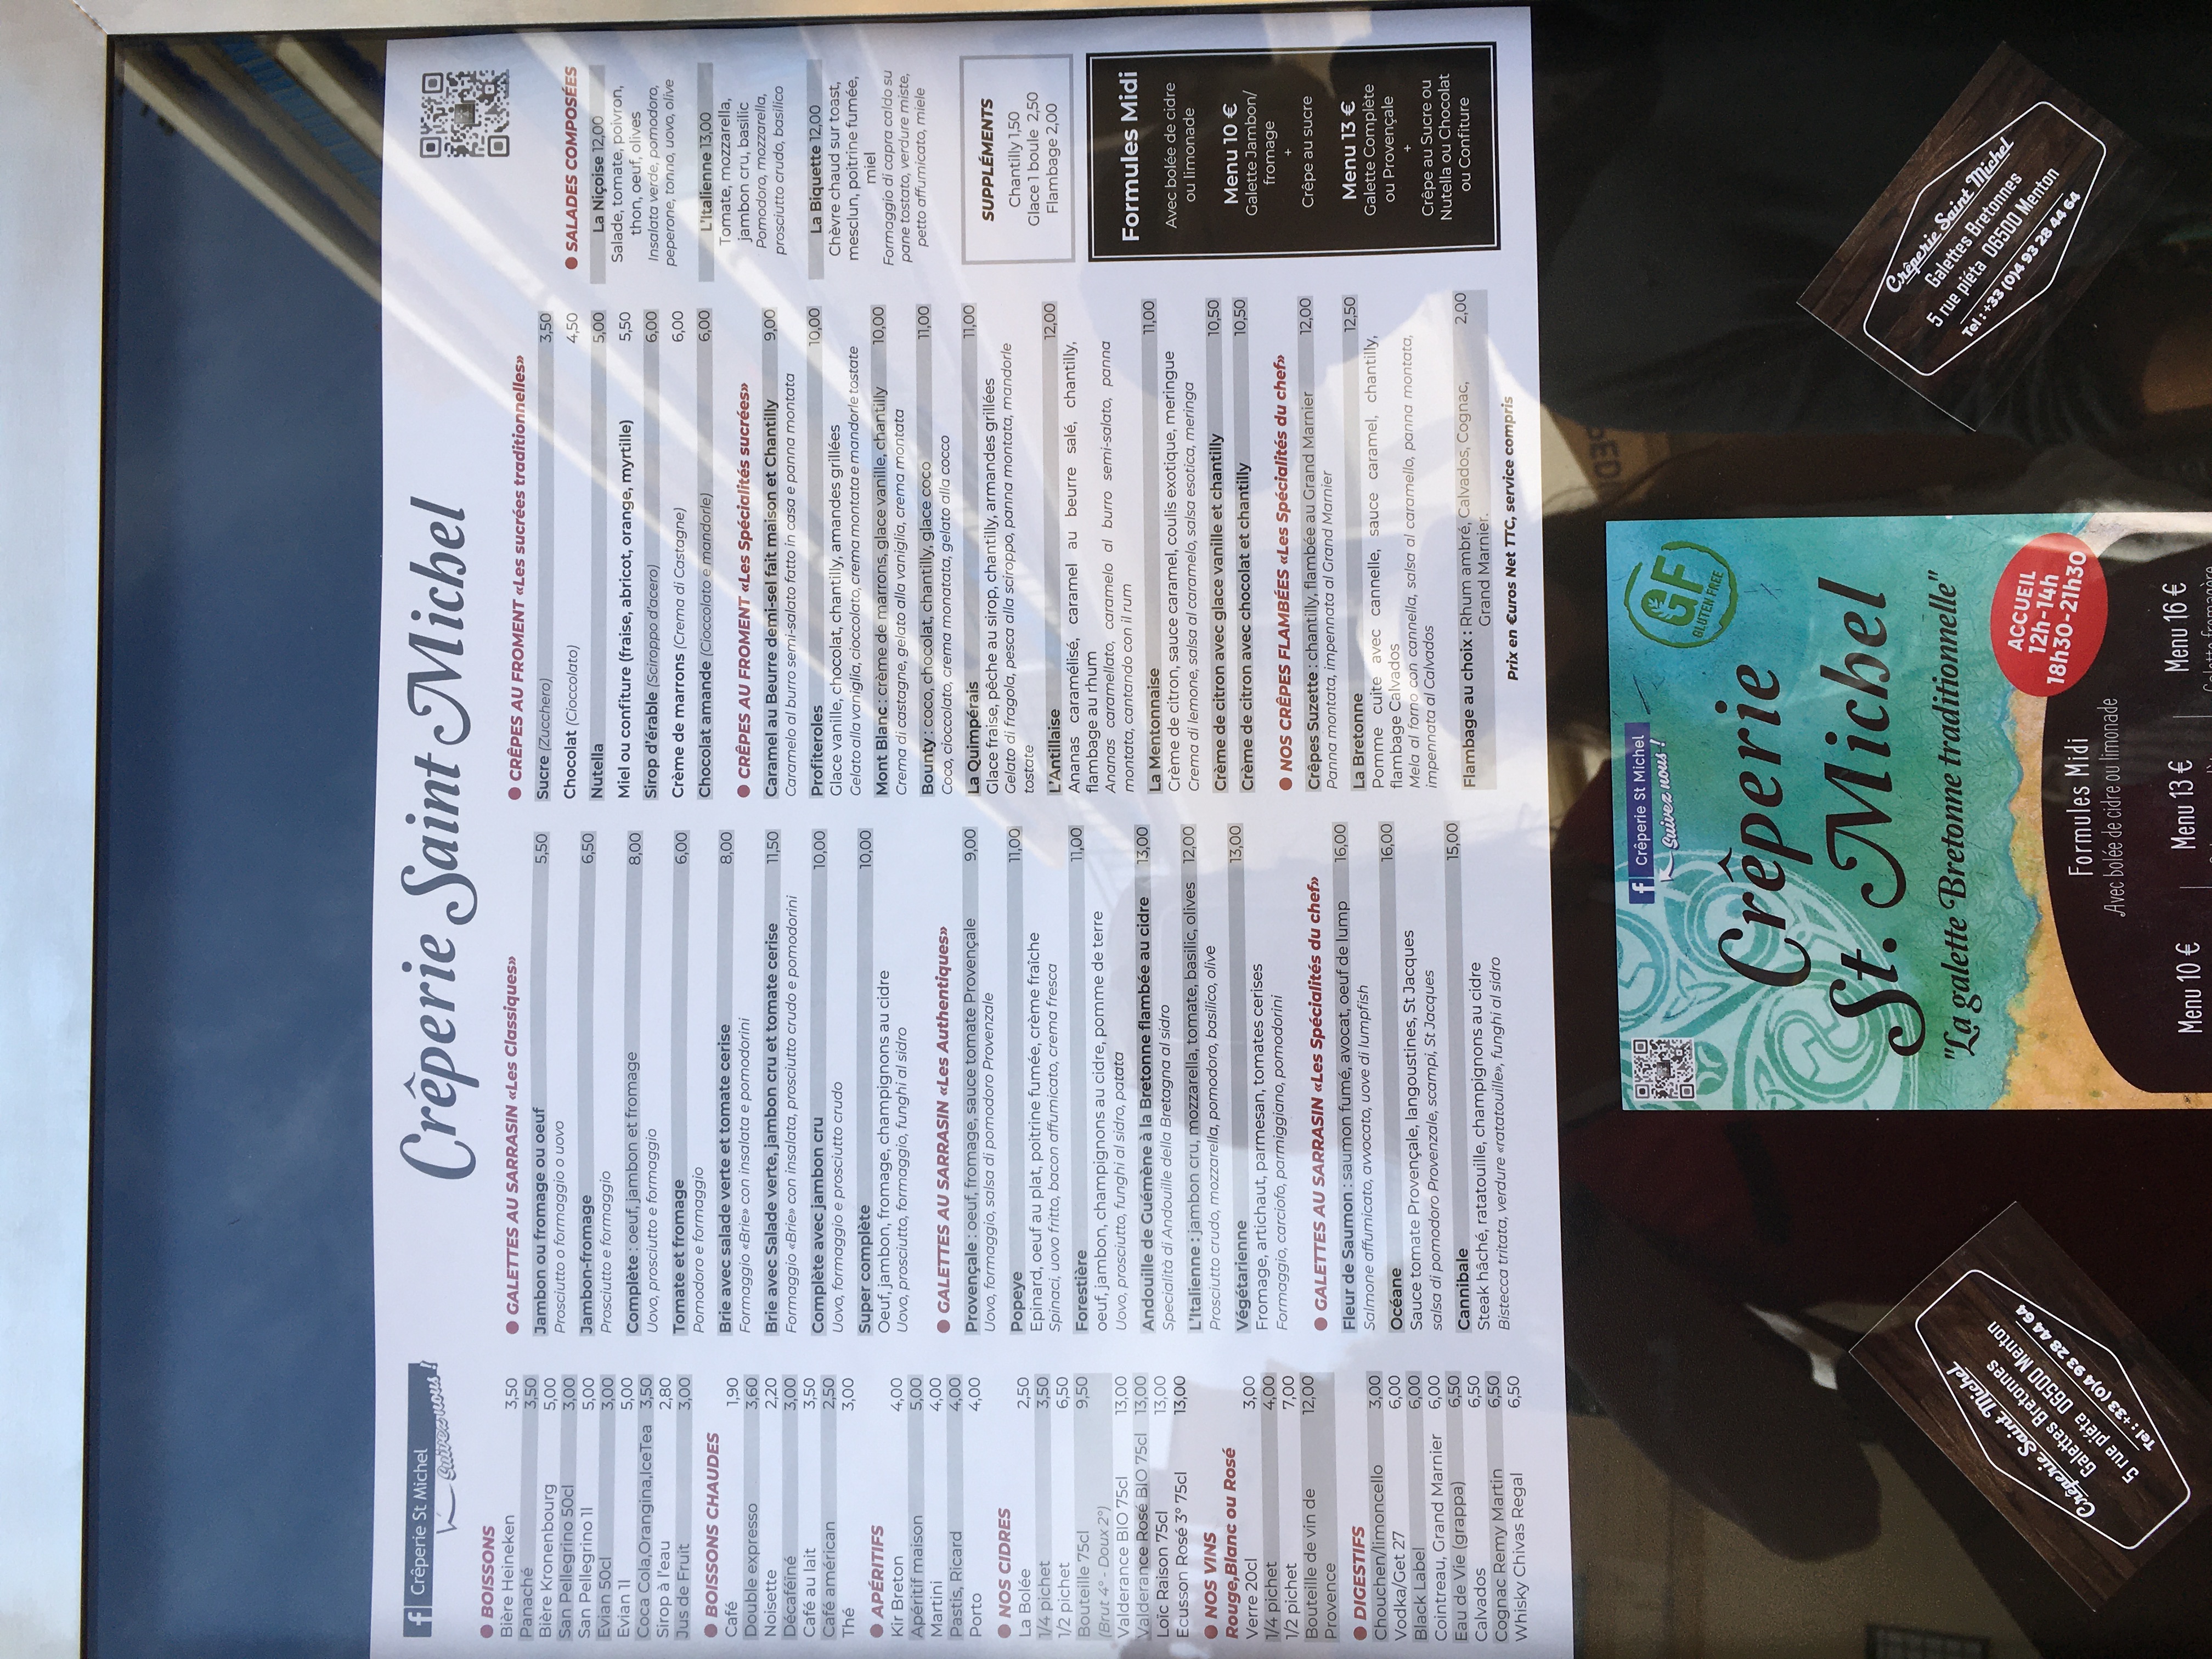 Crêperie St Michel
Suivez nous !
Crêperie Saint Michel
BOISSONS
Bière Heineken 3,50
Panaché 3,50
Bière Kronenbourg 5,00
San Pellegrino 50cl 3,00
San Pellegrino 1l 5,00
Evian 50cl 3,00
Evian 1l 5,00
Coca Cola,Orangina,IceTea 3,50
Sirop à l'eau 2,80
Jus de Fruit 3,00
BOISSONS CHAUDES
Café 1,90
Double expresso 3,60
Noisette 2,20
Décaféiné 3,00
Café au lait 3,50
Café américan 2,50
Thé 3,00
APÉRITIFS
Kir Breton 4,00
Apéritif maison 5,00
Martini 4,00
Pastis, Ricard 4,00
Porto 4,00
NOS CIDRES
La Bolée 2,50
1/4 pichet 3,50
1/2 pichet 6,50
Bouteille 75cl 9,50
(Brut 4° - Doux 2°)
Valderance BIO 75cl 13,00
Valderance Rosé BIO 75cl 13,00
Loïc Raison 75cl 13,00
Ecusson Rosé 3° 75cl 13,00
NOS VINS
Rouge,Blanc ou Rosé
Verre 20cl 3,00
1/4 pichet 4,00
1/2 pichet 7,00
Bouteille de vin de 12,00
Provence
DIGESTIFS
Chouchen/limoncello 3,00
Vodka/Get 27 6,00
Black Label 6,00
Cointreau, Grand Marnier 6,00
Eau de Vie (grappa) 6,50
Calvados 6,50
Cognac Remy Martin 6,50
Whisky Chivas Regal 6,50
GALETTES AU SARRASIN «Les Classiques»
Jambon ou fromage ou oeuf 5,50
Prosciutto o formaggio o uovo
Jambon-fromage 6,50
Prosciutto e formaggio
Complète : oeuf, jambon et fromage 8,00
Uovo, prosciutto e formaggio
Tomate et fromage 6,00
Pomodoro e formaggio
Brie avec salade verte et tomate cerise 8,00
Formaggio «Brie» con insalata e pomodorini
Brie avec Salade verte, jambon cru et tomate cerise 11,50
Formaggio «Brie» con insalato, prosciutto crudo e pomodorini
Complète avec jambon cru 10,00
Uovo, formaggio e prosciutto crudo
Super complète 10,00
Oeuf, jambon, fromage, champignons au cidre
Uovo, prosciutto, formaggio, funghi al sidro
GALETTES AU SARRASIN «Les Authentiques»
Provençale : oeuf, fromage, sauce tomate Provençale 9,00
Uovo, formaggio, salsa di pomodoro Provenzale
Popeye 11,00
Epinard, oeuf au plat, poitrine fumée, crème fraiche
Spinaci, uovo fritto, bacon affumicato, crema fresca
Forestière 11,00
oeuf, jambon, champignons au cidre, pomme de terre
Uovo, prosciutto, funghi al sidro, patata
Andouille de Guémène à la Bretonne flambée au cidre 13,00
Specialità di Andouille della Bretagna al sidro
L'Italienne : jambon cru, mozzarella, tomate, basilic, olives 12,00
Prosciutto crudo, mozzarella, pomodoro, basilico, olive
Végétarienne 13,00
Fromage, artichaut, parmesan, tomates cerises
Formaggio, carciofo, parmiggiano, pomodorini
GALETTES AU SARRASIN «Les Spécialités du chef»
Fleur de Saumon : saumon fumé, avocat, oeuf de lump 16,00
Salmone affumicato, avvocato, uove di lumpfish
Océane 16,00
Sauce tomate Provençale, langoustines, St Jacques
salsa di pomodoro Provenzale, scampi, St Jacques
Cannibale 15,00
Steak hâché, ratatouille, champignons au cidre
Bistecca tritata, verdure «ratatouille», funghi al sidro
CRÊPES AU FROMENT «Les sucrées traditionnelles»
Sucre (Zucchero) 3,50
Chocolat (Cioccolato) 4,50
Nutella 5,00
Miel ou confiture (fraise, abricot, orange, myrtille) 5,50
Sirop d'érable (Sciroppo d'acero) 6,00
Crème de marrons (Crema di Castagne) 6,00
Chocolat amande (Cioccolato e mandorle) 6,00
CRÊPES AU FROMENT «Les Spécialités sucrées»
Caramel au Beurre demi-sel fait maison et Chantilly 9,00
Caramelo al burro semi-salato fatto in casa e panna montata
Profiteroles 10,00
Glace vanille, chocolat, chantilly, amandes grillées
Gelato alla vaniglia, cioccolato, crema montata e mandorle tostate
Mont Blanc : crème de marrons, glace vanille, chantilly 10,00
Crema di castagne, gelato alla vaniglia, crema montata
Bounty : coco, chocolat, chantilly, glace coco 11,00
Coco, cioccolato, crema monatata, gelato alla cocco
La Quimpérais 11,00
Glace fraise, pêche au sirop, chantilly, armandes grillées
Gelato di fragola, pesca alla sciroppo, panna montata, mandorle
tostate
L'Antillaise 12,00
Ananas caramélisé, caramel au beurre salé, chantilly,
flambage au rhum
Ananas caramellato, caramelo al burro semi-salato, panna
montata, cantando con il rum
La Mentonnaise 11,00
Crème de citron, sauce caramel, coulis exotique, meringue
Crema di lemone, salsa al caramelo, salsa esotica, meringa
Crème de citron avec glace vanille et chantilly 10,50
Crème de citron avec chocolat et chantilly 10,50
NOS CRÊPES FLAMBÉES «Les Spécialités du chef»
Crêpes Suzette : chantilly, flambée au Grand Marnier 12,00
Panna montata, impennata al Grand Marnier
La Bretonne 12,50
Pomme cuite avec cannelle, sauce caramel, chantilly,
flambage Calvados
Mela al forno con cannella, salsa al caramello, panna montata,
impennata al Calvados
Flambage au choix : Rhum ambré, Calvados, Cognac, 2,00
Grand Marnier.
Prix en €uros Net TTC, service compris
SALADES COMPOSÉES
La Niçoise 12,00
Salade, tomate, poivron,
thon, oeuf, olives
Insalata verde, pomodoro,
peperone, tonno, uovo, olive
L'Italienne 13,00
Tomate, mozzarella,
jambon cru, basilic
Pomodoro, mozzarella,
prosciutto crudo, basilico
La Biquette 12,00
Chèvre chaud sur toast,
mesclun, poitrine fumée,
miel
Formaggio di capra caldo su
pane tostato, verdure miste,
petto affumicato, miele
SUPPLÉMENTS
Chantilly 1,50
Glace 1 boule 2,50
Flambage 2,00
Formules Midi
Avec bolée de cidre
ou limonade
Menu 10 €
Galette Jambon/
fromage
+
Crêpe au sucre
Menu 13 €
Galette Complète
ou Provençale
+
Crêpe au Sucre ou
Nutella ou Chocolat
ou Confiture
Crêperie Saint Michel
Galettes Bretonnes
5 rue piéta 06500 Menton
Tel : +33 (0)4 93 28 44 64
Crêperie St Michel
Suivez nous !
GF
GLUTEN FREE
Crêperie
St. Michel
"La galette Bretonne traditionnelle"
ACCUEIL
12h-14h
18h30-21h30
Formules Midi
Avec bolée de cidre ou limonade
Menu 10 € Menu 13 € Menu 16 €
Crêperie Saint Michel
Galettes Bretonnes
5 rue piéta 06500 Menton
Tel : +33 (0)4 93 28 44 64